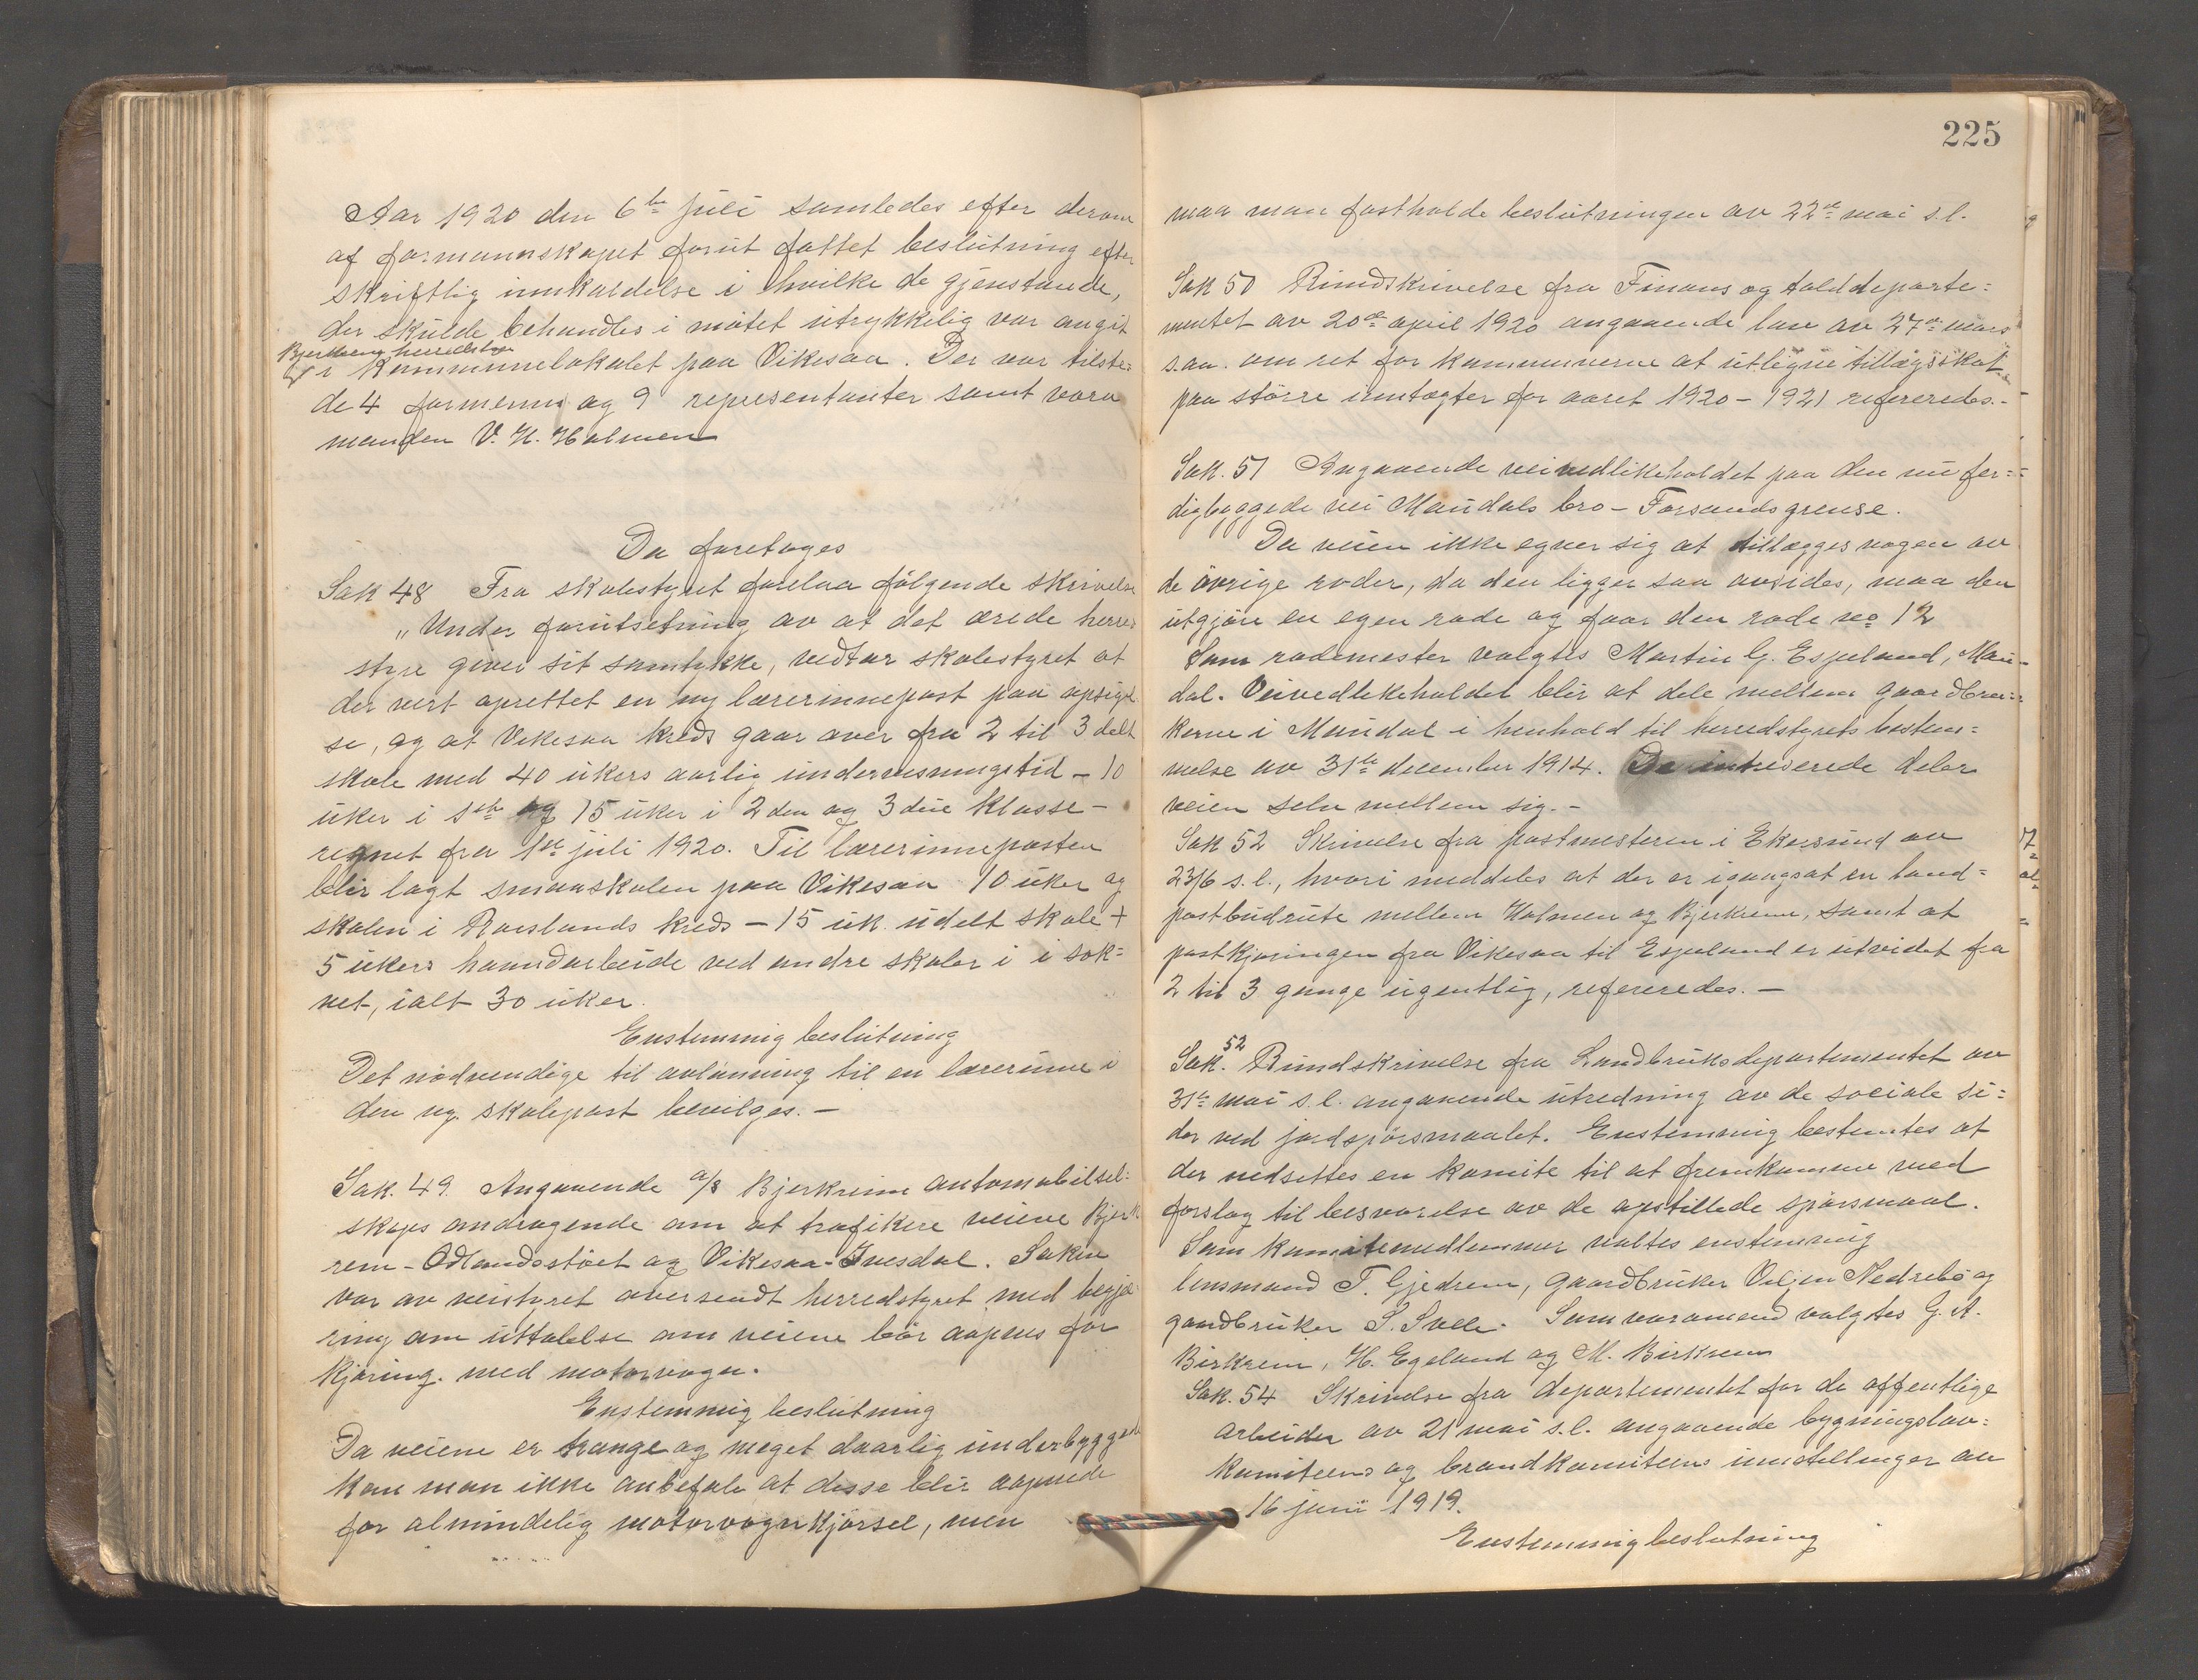 Aar 1920 den 6te juli samledes efter derom
af formannskapet forut fattet beslutning efter
skriftlig innkaldelse i hvilke de gjenstande,
der skulde behandles i møtet utrykkilig var angit
Bjerkreim herredstyre
i Kommunelokalet paa Vikesaa. Der var tilste-
de 4 formenn og 9 representanter samt vara
manden V. H. Holmen
Da foretoges
Sak 48 Fra skolestyret forelaa følgende skrivelse
„Under forutsetning av at det ærede herreds
styre giver sit samtykke, vedtar skolestyret at
der vert oprettet en ny lærerinnepost paa opsigel
se, og at Vikesaa kreds gaar over fra 2 til 3 delt
skole med 40 ukers aarlig undervisningstid – 10
uker i 1ste og 15 uker i 2den og 3die klasse –
regnet fra 1ste juli 1920. Til lærerinneposten
blir lagt smaaskolen paa Vikesaa 10 uker og
skolen i Røislands kreds – 15 uk. udelt skole +
5 ukers haandarbeide ved andre skoler i i sok=
net, ialt 30 uker.
Enstemmig beslutning
Det nødvendige til avlønning til en lærerinne i
den ny. skolepost bevilges. –
Sak. 49. Angaaende a/s Bjerkreim automobilsel=
skaps andragende om at trafikere veiene Bjerk
reim – Ødlandsstøet og Vikesaa – Ivesdal. Saken
var av veistyret oversendt herredstyret med begjæ
ring om uttalelse om veiene bør aapnes for
kjøring. med motorvogn.
Enstemmig beslutning
Da veiene er trange og meget daarlig underbygget
kan man ikke anbefale at disse blir aapnede
for almindelig motorvognkjørsel, men
225
maa man fastholde beslutningen av 22de mai s.l.
Sak 50 Rundskrivelse fra Finans og tolddeparte=
mentet av 20de april 1920 angaaende lov av 27de mars
s.aa. om ret for kommunerne at utligne tillægsskat
paa større inntægter for aaret 1920 – 1921 refereredes. –
Sak. 51 Angaaende veivedlikeholdet paa den nu fer=
digbyggede vei Maudals bro – Forsands grense.
Da veien ikke egner sig at tillægges nogen av
de øvrige roder, da den ligger saa avsides, maa den
utgjøre en egen rode og faar den rode no 12
Som rodemester valgtes Martin G. Espeland, Mau-
dal. Veivedlikeholdet blir at dele mellem gaardbru=
kerne i Maudal i henhold til herredstyrets bestem=
melse av 31te december 1914. De intreserede deler
veien selv mellem sig. –
Sak 52 Skrivelse fra postmesteren i Ekersund av
23/6 s.l., hvori meddeles at der er igangsat en land=
postbudrute mellem Holmen og Bjerkreim, samt at
postkjøringen fra Vikesaa til Espeland er utvidet fra
2 til 3 gange ugentlig, refereredes. –
52
Sak. Rundskrivelse fra Landbruksdepartementet av
31te mai s.l. angaaende utredning av de sociale si=
der ved jordspørsmaalet. Enstemmig bestemtes at
der nedsettes en komite til at fremkomme med
forslag til besvarelse av de opstillede spørsmaal.
Som komitemedlemmer valtes enstemmig
lensmand T. Gjedrem, gaardbruker Vel jen Nedrebø og
gaardbruker S. Svele. Som varamend valgtes G. A.
Birkrem, H. Egeland og M. Birkrem
Sak. 54 Skrivelse fra departementet for de offentlige
arbeider av 21 mai s.l. angaaende bygningslov=
komiteens og brandkomiteens innstillinger av
16 juni 1919.
Enstemmig beslutning